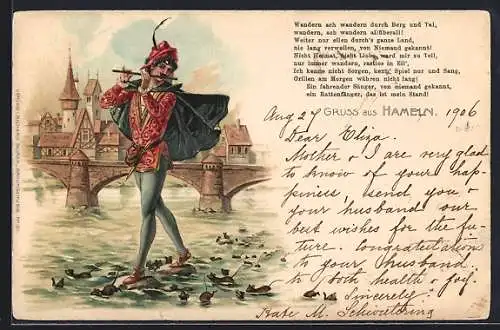 Wandern ach wandern durch Berg und Tal,
wandern, ach wandern allüberall!
Weiter nur eilen durch's ganze Land,
nie lang verweilen, von Niemand gekannt!
Nicht Heimat, nicht Liebe ward mir zu Teil,
nur immer wandern, rastlos in Eil',
Ich kenne nicht Sorgen, kenn' Spiel nur und Sang,
Grillen am Morgen währen nicht lang!
Ein fahrender Sänger, von niemand gekannt,
ein Rattenfänger, das ist mein Stand!
GRUSS AUS HAMELN.
Aug 27 1906
Dear Eliza.
Mother & I are very glad
to know of your hap-
piness, send you &
your husband our
best wishes for the fu-
ture. Congratulation
to your husband.
to both health & joy.
Sincerely
Kate M.